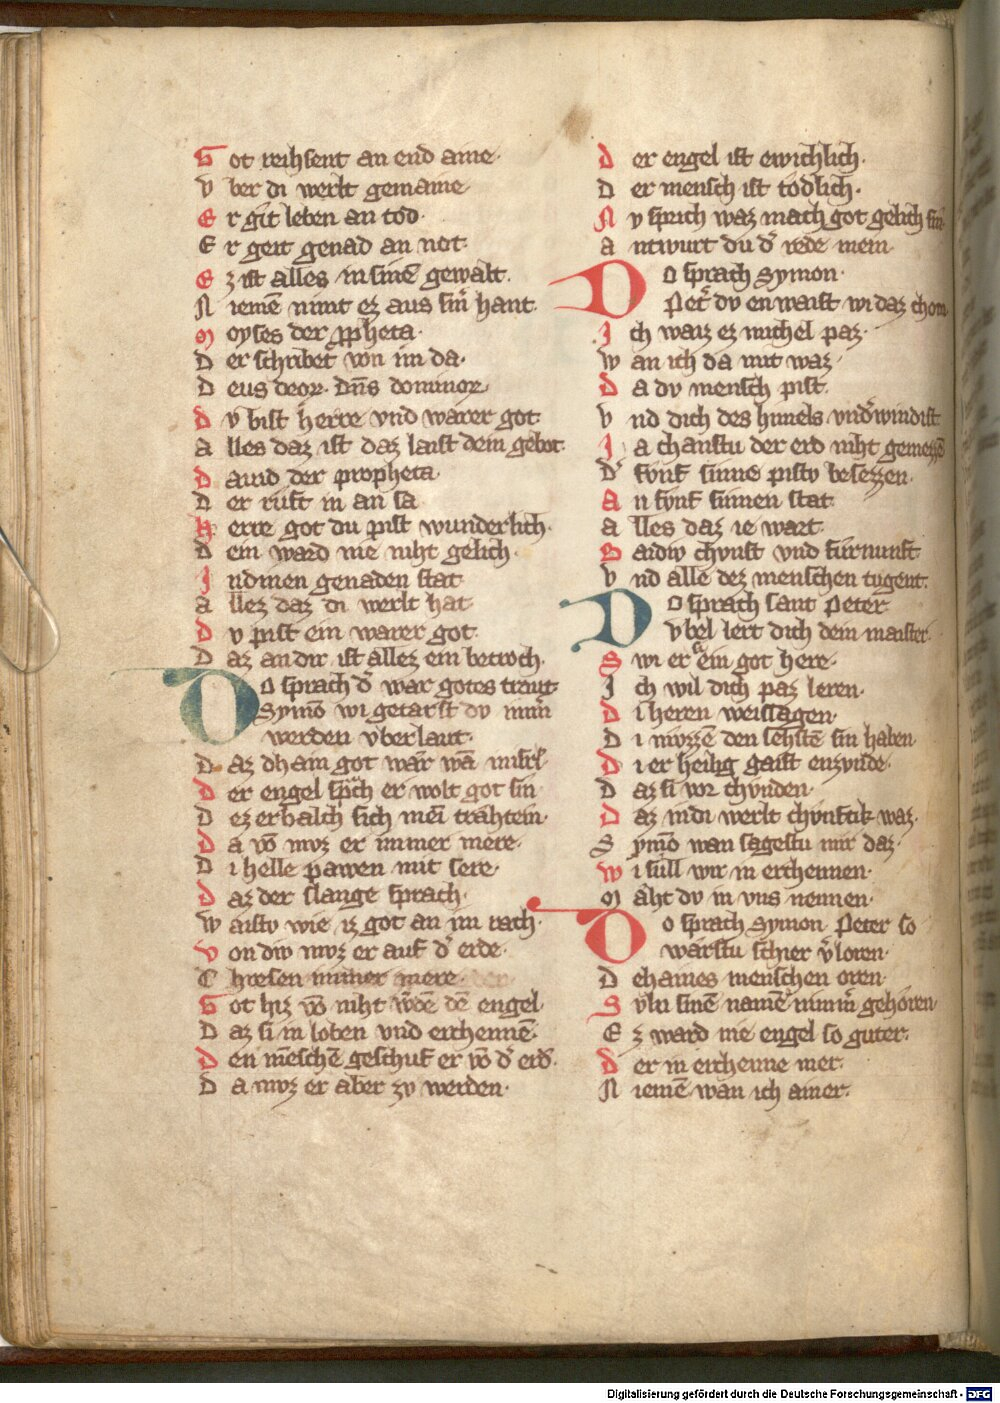 Got reihsent an end aine·
Vber di werlt gemaine
Er git leben an tod·
Er geit genad an not·
Ez ist alles in sinē gewalt·
Niemē nimt ez aus sin̄ hant·
Moyses der ꝓpheta·
Der schribet von im da·
Deus deoꝝ· Dn̄s dominoꝝ
Dv bist herre vnd warer got
Alles daz ist daz laist dein gebot·
Dauid der propheta·
Der rüft in an sa
Herre got du pist wunderlich·
Dein ward nie niht gelich·
Indinen genaden stat
Allez daz di werlt hat
Dv pist ein warer got·
Daz an dir ist allez ein betroch·
Do sprach d͛ war gotes traut·
Symō wi getarst dv
werden vberlaut·
Daz dhain got wār wā
Der engel sp̄ch er wolt got sin
Dez erbalch sich mei trähtein·
Da vō mvz er immer mere·
Di helle pawen mit sere·
Daz der slange sprach·
Waistv wie iz got an im rach·
Von div mvz er auf d͛ erde·
Chresen immer mere·
Got hiz vō niht w͛dē dē engel·
Daz si in loben vnd erchennē·
Den mēschē geschuf er vō d͛ erd·
Da mvz er aber zv werden·
Der engel ist ewichlich·
Der mensch ist tödlich·
Nv sprich waz mach got gelich sin
Antwurt du d͛ rede mein
Do sprach Symon·
Pet͛ dv en waist wi daz chom
Ich waiz ez michel paz·
Wan ich da mit waz·
Da dv mensch pist·
Vnd dich des himels vnd͛windist
Ja chanstu der erd niht gemezzē
D͛ fvnf sinne pistv besezzen·
An fvnf sinnen stat
Alles daz ie wart·
Baidiv chvnst vnd fürnunft
Vnd alle dez menschen tugent·
Do sprach sant Peter
Vbel lert dich dein maister·
Swi er ein got here·
Ich wil dich paz leren·
Di heren weissagen·
Di mvzzē den sehstē sin haben
Di er heilig gaist enzvnde·
Daz si vor chvnden·
Daz indi werlt chvnftik waz·
Symō wan sagestu mir daz·
Wi süll wir in erchennen·
Maht dv in vns nennen·
Do sprach Symon Peter so
warstu schier v͛loren·
Dehaines menschen oren·
Svln sinē namē nimm͛ gehören·
Ez ward nie engel so guter·
Der in erchenne mer·
Niemē wan ich ainer·
Digitalisierung gefördert durch die Deutsche Forschungsgemeinschaft - DFG